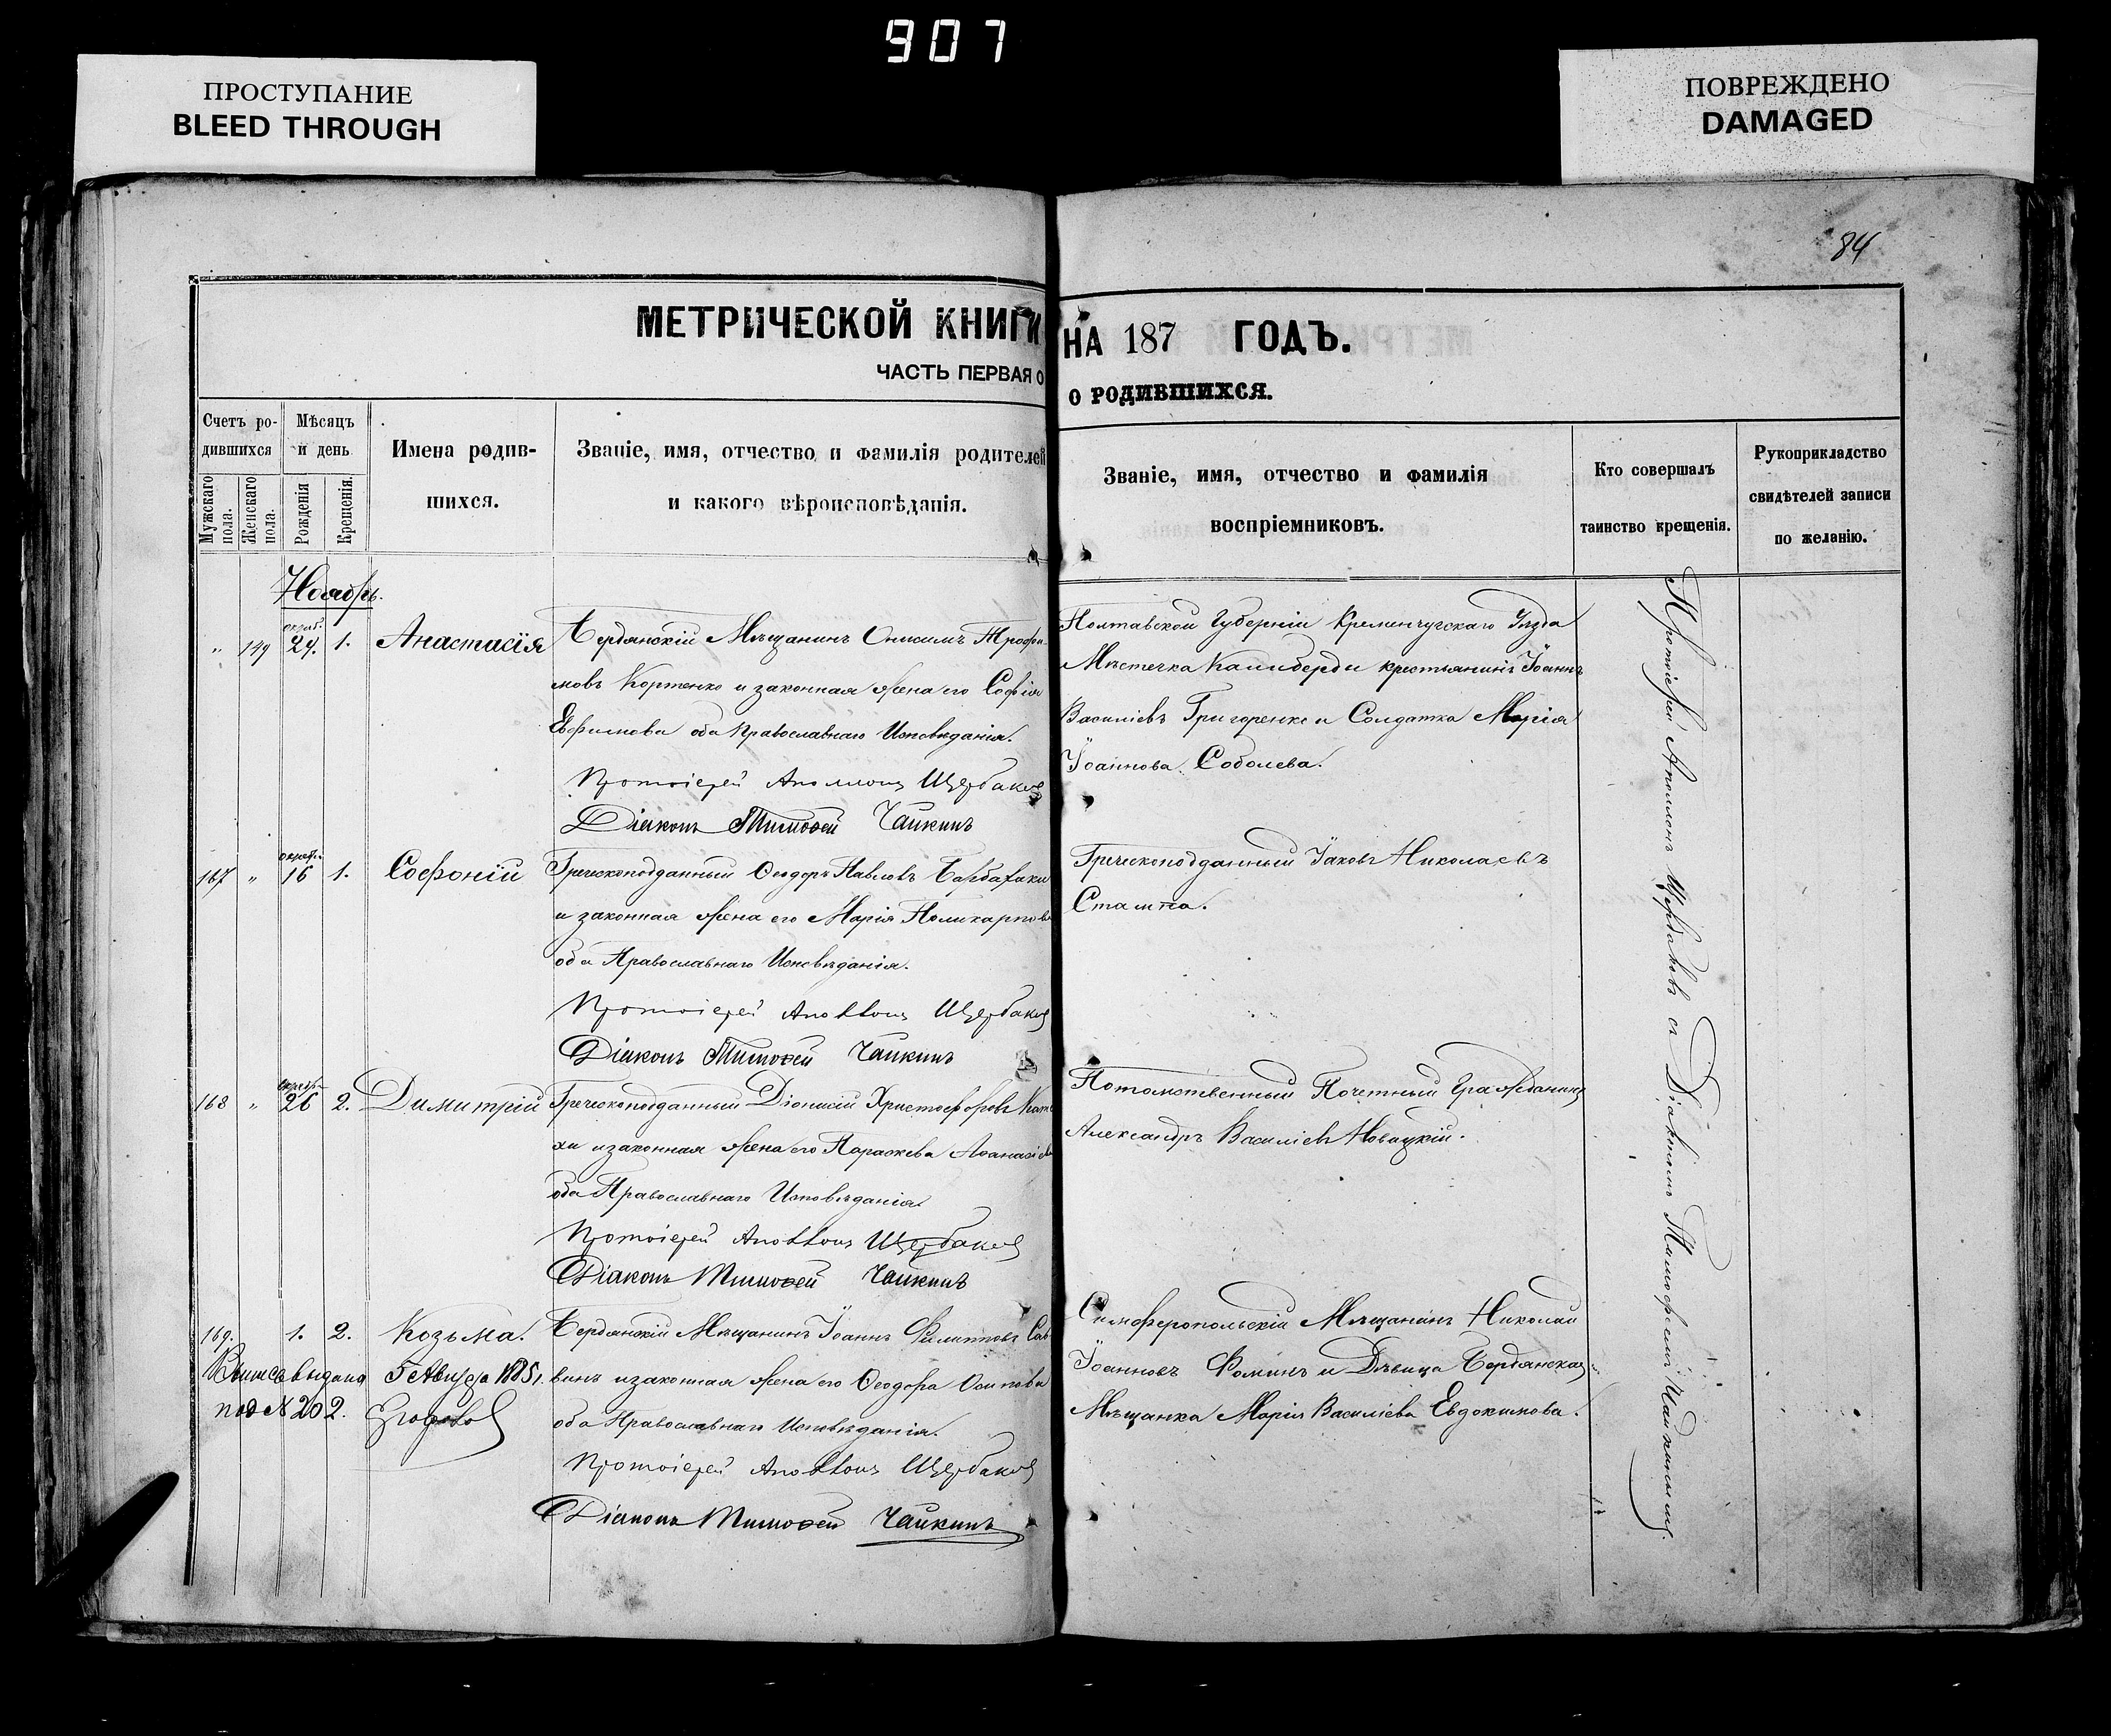 907
ПРОСТУПАНИЕ
BLEED THROUGH
ПОВРЕЖДЕНО
DAMAGED
84
МЕТРИЧЕСКОЙ КНИГИ
ЧАСТЬ ПЕРВАЯ О
НА 187 ГОДЪ.
О РОДИВШИХСЯ.
Счетъ ро-
дившихся
Мужскаго пола.
Женскаго пола.
Мѣсяцъ
и день
Рожденія
Крещенія.
Имена родив-
шихся.
Званіе, имя, отчество и фамилія родителей
и какого вѣроисповѣданія.
Званіе, имя, отчество и фамилія
воспріемниковъ.
Кто совершалъ
таинство крещенія.
Рукоприкладство
свидѣтелей записи
по желанію.
Ноябрь.
октяб.
" 149 24. 1. Анастасія Бердянскій Мѣщанинъ Онисимъ Трофи
мовъ Кортенко и законная жена его Софія
Евфимова оба Православнаго Исповѣданія.
Протоіерей Аполлонъ Щербаковъ
Діаконъ Тимоѳей Чайкинъ
Полтавской Губерніи Кременчугскаго Уѣзда
Мѣстечка Камиберды крестьянинъ Іоаннъ
Василіевъ Григоренко и Солдатка Марія
Іоаннова Соболева.
октяб.
167 " 16 1. Софоній Греческоподданный Ѳеодоръ Павловъ
и законная жена его Марія Поликарпова
оба Православнаго Исповѣданія.
Протоіерей Аполлонъ Щербаковъ
Діаконъ Тимоѳей Чайкинъ
Греческоподданный Іаковъ Николаевъ
октяб.
168 " 26 2. Димитрій Греческоподданный Діонисій Христофоровъ
хи и законная жена его Параскева Аѳанасіева
оба Православнаго Исповѣданія.
Протоіерей Аполлонъ Щербаковъ
Діаконъ Тимоѳей Чайкинъ
Потомственный Почетный Гражданинъ
Александръ Василіевъ Новицкій.
169. 1. 2. Козьма. Бердянскій Мѣщанинъ Іоаннъ Филипповъ Сав
винъ и законная жена его Ѳеодора Осипова
оба Православнаго Исповѣданія.
Протоіерей Аполлонъ Щербаковъ
Діаконъ Тимоѳей Чайкинъ
Выпись выдана 5 Августа 1885 г.
под № 202.
Симферопольскій Мѣщанинъ Николай
Іоанновъ Фоминъ и Дѣвица Бердянская
Мѣщанка Марія Василіева Евдокимова.
Протоіерей Аполлонъ Щербаковъ съ Діакономъ Тимофеемъ Чайкинымъ.